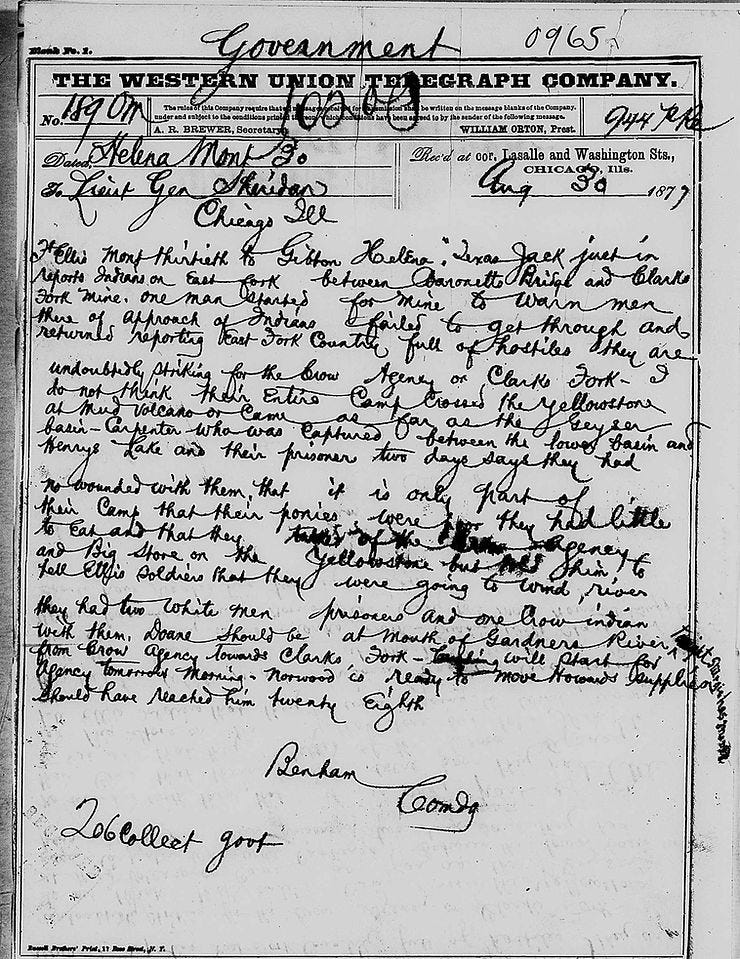 Blank No. 1.
Government 0965
THE WESTERN UNION TELEGRAPH COMPANY.
No. 189 Om
The rules of this Company require that all messages for shall be written on the message blanks of the Company,
under and subject to the conditions printed have been agreed to by the sender of the following message.
A. R. BREWER, Secretary. WILLIAM ORTON, Prest. 944
Dated, Helena Mont 30
Rec'd at cor. Lasalle and Washington Sts.,
CHICAGO, Ills.
To Lieut Gen Sheridan
Aug 30 1877
Chicago Ill
Ft Ellis Mont thirtieth to Gibbon Helena, "Texas Jack just in
reports Indians on East fork between Baronetts Bridge and Clarks
Fork Mine. one man started for mine to warn men
there of approach of Indians failed to get through and
returned reporting East Fork Country full of hostiles they are
undoubtedly striking for the Crow Agency or Clarks Fork - I
do not think their Entire Camp crossed the Yellowstone
at Mud Volcano or Came as far as the Geyser
basin - Carpenter who was captured between the lower basin and
Henrys Lake and their prisoner two days says they had
no wounded with them, that it is only part of
their Camp that their ponies were poor they had little
to Eat and that they of the Agency
and Big Store on the Yellowstone but told him to
tell Ellis soldiers that they were going to Wind river
they had two white men prisoners and one Crow indian
with them. Doane should be at Mouth of Gardners River
from Crow Agency towards Clarks Fork - will start for
Agency tomorrow morning - Norwood is ready to move Howards supplies
should have reached him twenty Eighth
Benham
Comdg
206 Collect govt
Russell Brothers' Print, 17 Rose Street, N. Y.